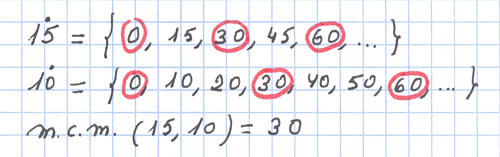 15̇ = { 0, 15, 30, 45, 60, ... }
10̇ = { 0, 10, 20, 30, 40, 50, 60, ... }
m.c.m. (15, 10) = 30